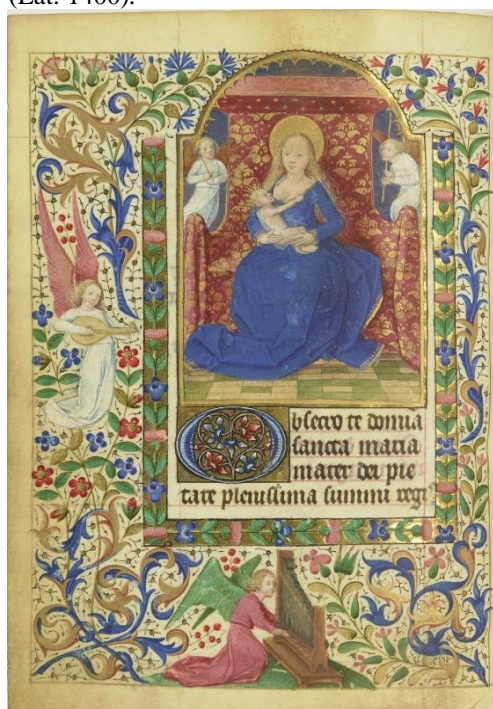 (Lat.
Obsecro te domina
sancta maria
mater dei pie
tate plenissima summi regi